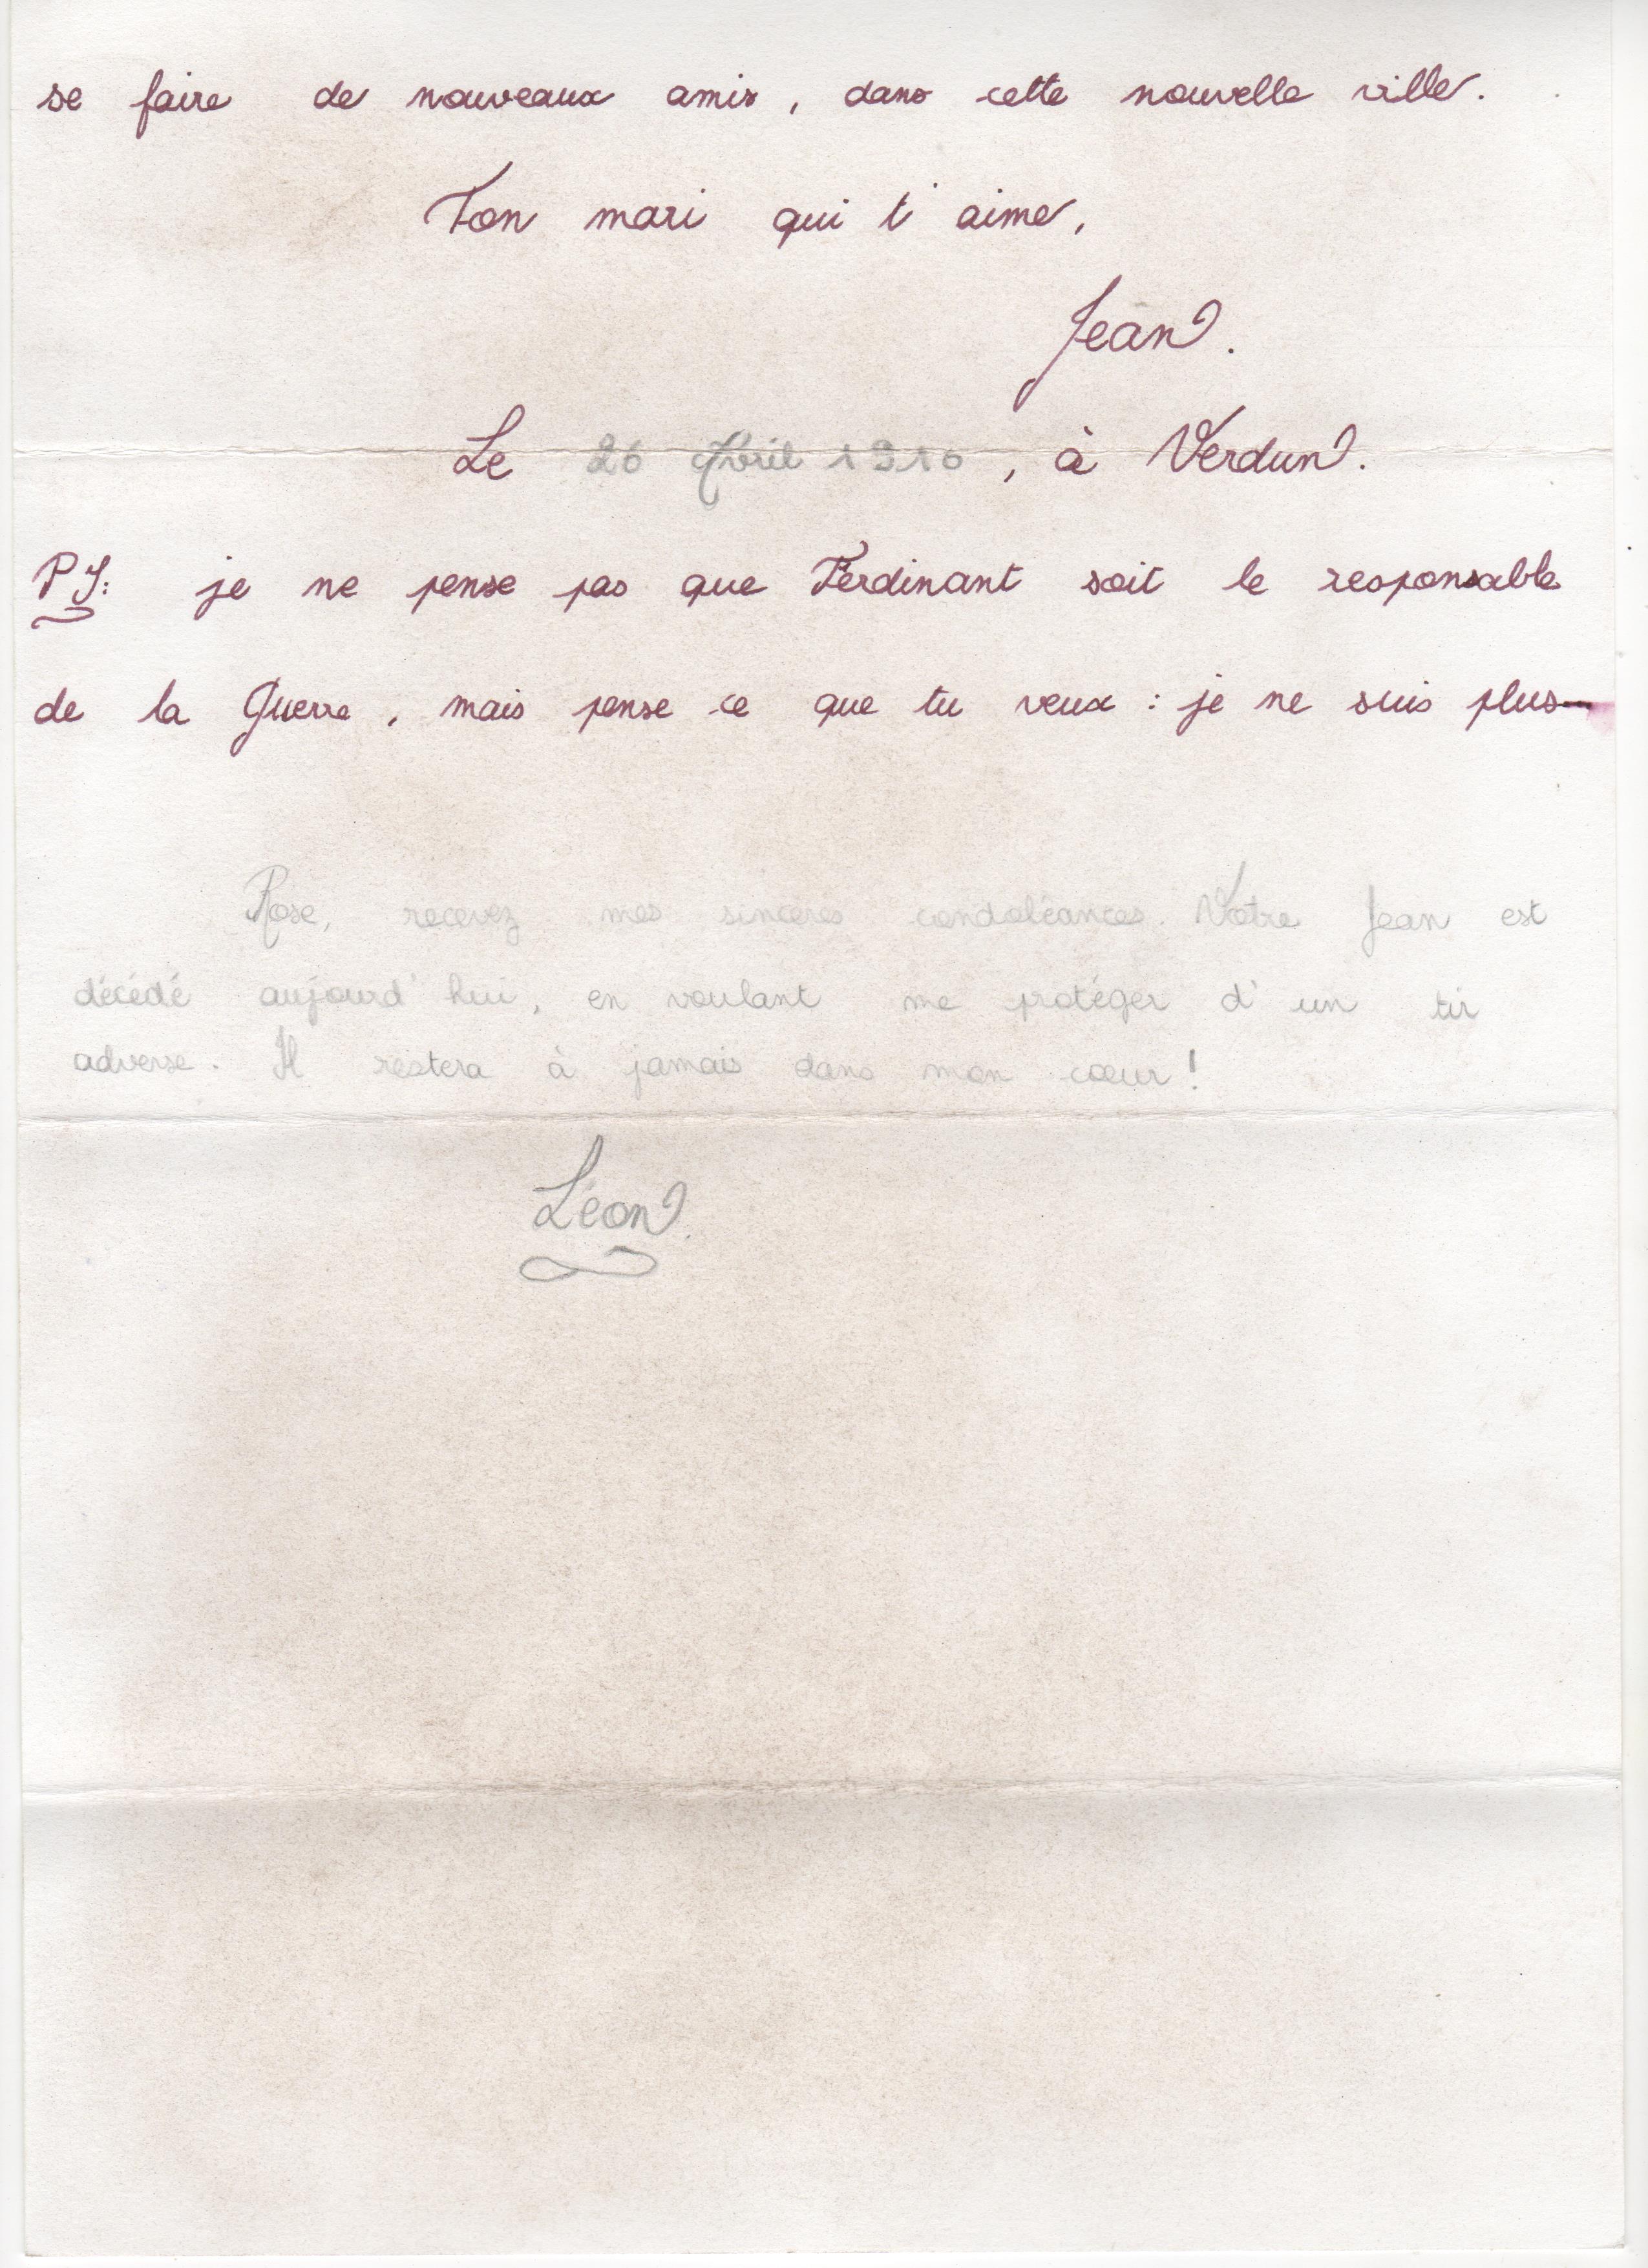 se faire de nouveaux amis, dans cette nouvelle ville.
Ton mari qui t'aime,
Jean.
Le 26 Avril 1916, à Verdun.
PS: je ne pense pas que Ferdinant soit le responsable
de la Guerre, mais pense ce que tu veux : je ne suis plus
Rose, recevez mes sincères condoléances. Votre Jean est
décédé aujourd'hui, en voulant me protéger d'un tir
adverse. Il restera à jamais dans mon cœur !
Léon.